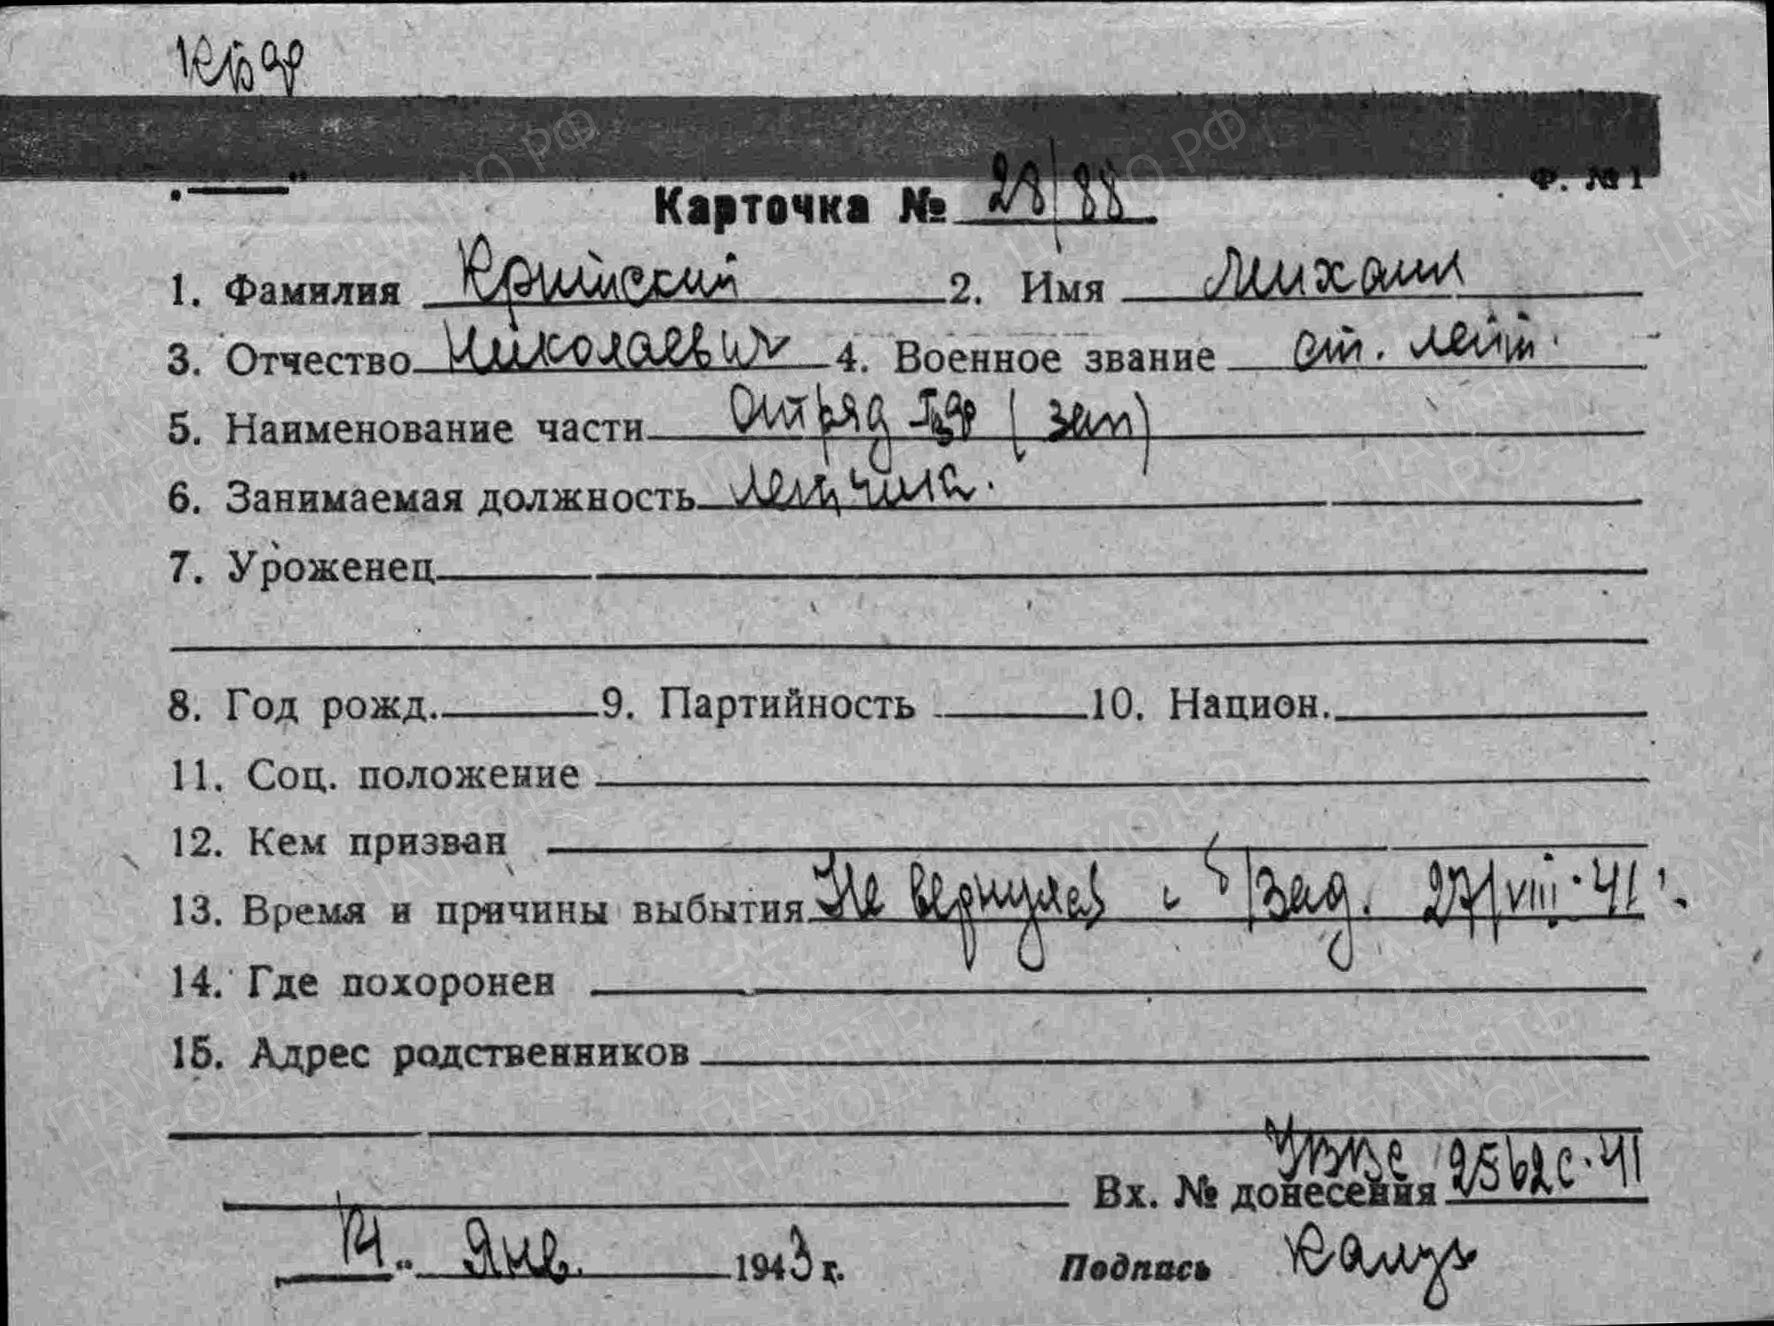 КБФ
Ф. № 1
Карточка № 28/88
1. Фамилия Крийский 2. Имя Михаил
3. Отчество Николаевич 4. Военное звание ст. лейт.
5. Наименование части Отряд (зап)
6. Занимаемая должность летчика.
7. Уроженец
8. Год рожд. 9. Партийность 10. Национ.
11. Соц. положение
12. Кем призван
13. Время и причины выбытия Не вернулся с б/зад. 27/VIII·41 г.
14. Где похоронен
15. Адрес родственников
Вх. № донесения УВВС 2562с·41
14 „ Янв. 1943 г. Подпись